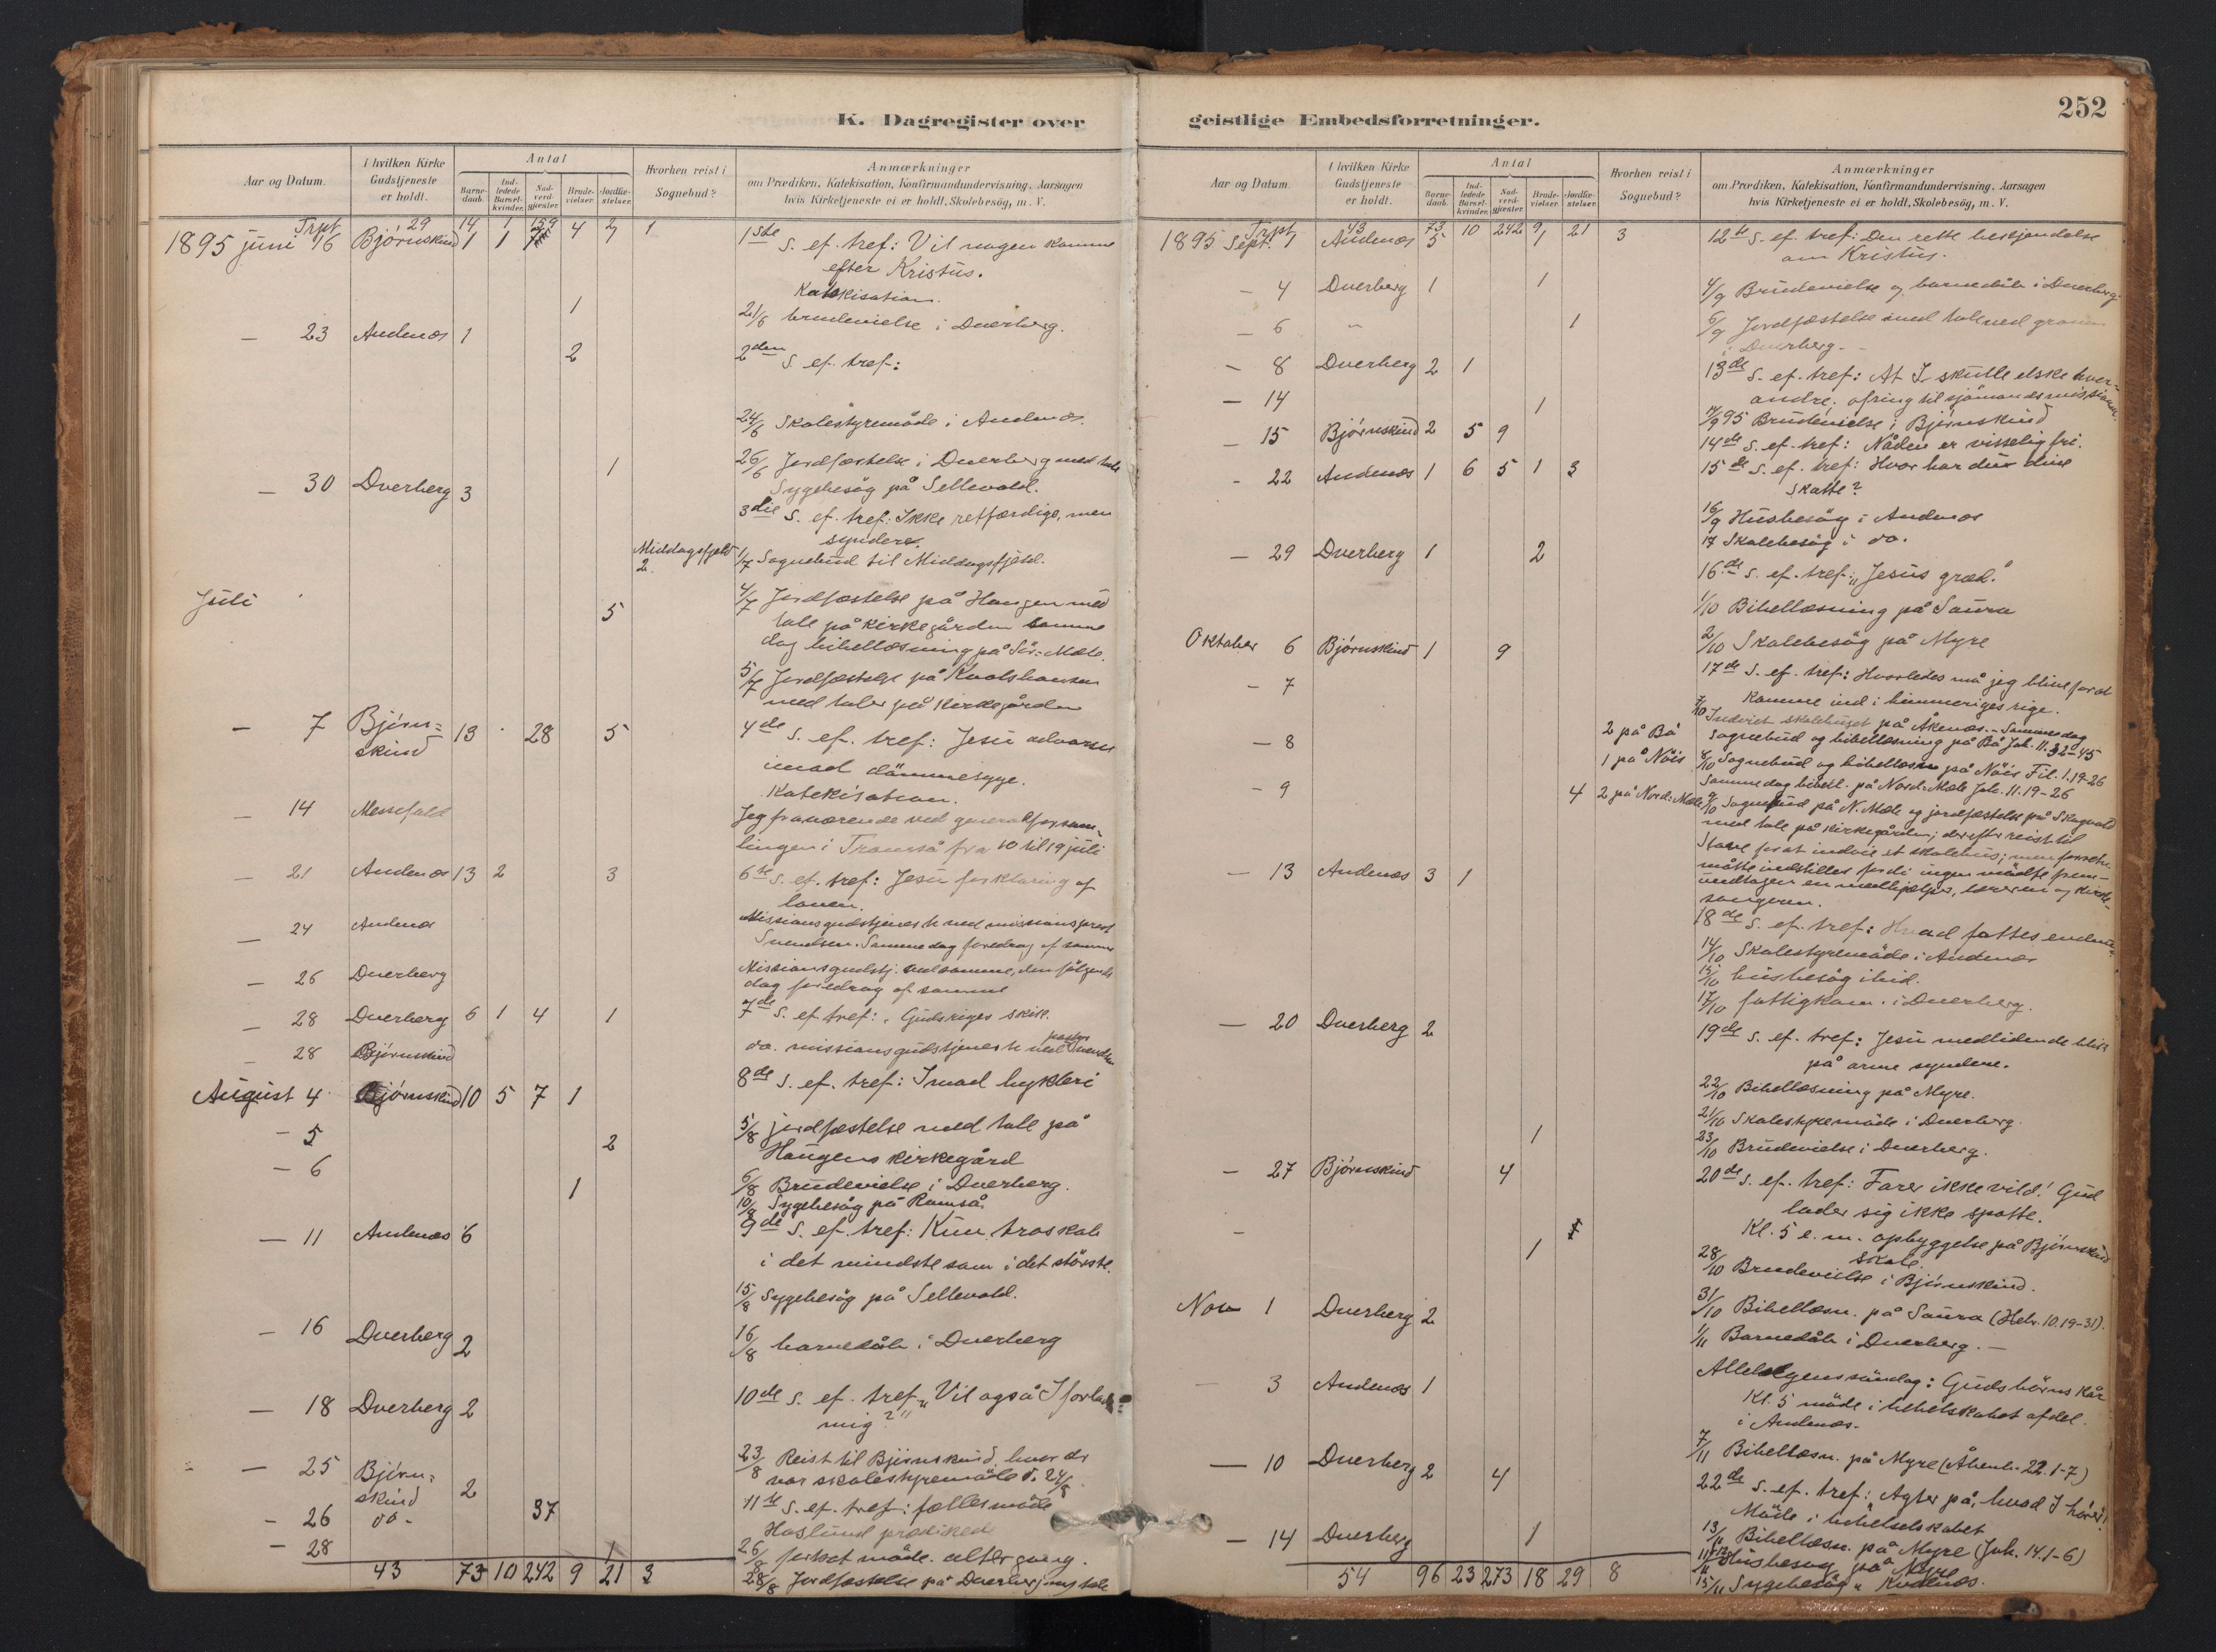 K. Dagregister over
Aar og Datum.
I hvilken Kirke Gudstjeneste er holdt.
Antal
Barne-daab.
Ind-ledede Barsel-kvinder.
Nad-verd-gjæster.
Brude-vielser.
Jordfæ-stelser.
Hvorhen reist i Sognebud?
Anmærkninger
om Prædiken, Katekisation, Konfirmandundervisning, Aarsagen
hvis Kirketjeneste ei er holdt, Skolebesög, m. V.
Trpt 29 14 1 159 4 2 1
1895 juni 16 Bjørnskind 1 1 1ste S. ef. tref: Vil nogen komme
efter Kristus.
Katekisation.
1 21/6 brudevielse i Dverberg.
— 23 Andenæs 1 2 2den S. ef. tref:
24/6 Skolestyremøde i Andenæs.
1 26/6 Jordfæstelse i Dverberg med tale
Sygebesøg på Sellevold.
— 30 Dverberg 3 3die S. ef. tref: Ikke retfærdige, men
syndere.
Middagsfjeld 2 1/7 Sognebud til Middagsfjeld.
Juli 5 4/7 Jordfæstelse på Haugen med
tale på kirkegården samme
dag bibellæsning på Sör-Mæle.
5/7 Jordfæstelse på
med taler på kirkegården
— 7 Bjørn=skind 13 28 5 4de S. ef. tref: Jesu advarsel
imod dömmesyge.
Katekisation.
— 14 Messefald Jeg fraværende ved generalforsam-
lingen i Tromsø fra 10 til 19 juli
— 21 Andenæs 13 2 3 6te S. ef. tref: Jesu forklaring af
loven.
— 24 Andenæs Missionsgudstjeneste ved missionsprest
Svendsen. Samme dag foredrag af samme
— 26 Dverberg Missionsgudstj. ved samme, den følgende
dag foredrag af samme
— 28 Dverberg 6 1 4 1 7de S. ef. tref: Guds riges skik.
— 28 Bjørnskind do. missionsgudstjeneste ved pastor Svendsen
August 4 Bjørnskind 10 5 7 1 8de S. ef. tref: Imod hykleri
— 5 2 5/8 jordfæstelse med tale på
Haugens kirkegård
— 6 1 6/8 Brudevielse i Dverberg.
10/8 Sygebesøg på Ramså.
— 11 Andenæs 6 9de S. ef. tref: Kun troskab
i det mindste som i det störste.
15/8 Sygebesøg på Sellevold.
— 16 Dverberg 2 16/8 barnedåb i Dverberg
— 18 Dverberg 2 10de S. ef. tref: "Vil også I forlade
mig?"
23/8 Reist til Bjørnskind, hvor der
var skolestyremøde d. 24/8.
— 25 Bjørn=skind 2 11te S. ef. tref: fælles møde
— 26 do. 37 Haslund prædiked
26/8 fortsat møde. altergang.
— 28 1 28/8 Jordfæstelse på Dverberg m. tale
43 73 10 242 9 21 3
geistlige Embedsforretninger.
252
Aar og Datum.
I hvilken Kirke Gudstjeneste er holdt.
Antal
Barne-daab.
Ind-ledede Barsel-kvinder.
Nad-verd-gjæster.
Brude-vielser.
Jordfæ-stelser.
Hvorhen reist i Sognebud?
Anmærkninger
om Prædiken, Katekisation, Konfirmandundervisning, Aarsagen
hvis Kirketjeneste ei er holdt, Skolebesög, m. V.
Trpt 43 73 10 242 9 21 3
1895 Sept. 1 Andenæs 5 1 12te S. ef. tref: Den rette bekjendelse
om Kristus.
— 4 Dverberg 1 1 4/9 Brudevielse og barnedåb i Dverberg.
— 6 " 1 6/9 Jordfæstelse med tale ved graven
i Dverberg.
— 8 Dverberg 2 1 13de S. ef. tref: At I skulle elske hver-
andre. ofring til sjömandsmissionen.
— 14 1 14/9 95 Brudevielse i Bjørnskind
— 15 Bjørnskind 2 5 9 14de S. ef. tref: Nåden er visselig fri.
— 22 Andenæs 1 6 5 1 3 15de S. ef. tref: Hvor har du dine
skatte?
16/9 Husbesøg i Andenæs
17 Skolebesøg i do.
— 29 Dverberg 1 2 16de S. ef. tref: "Jesus græd."
1/10 Bibellæsning på Saura
2/10 Skolebesøg på Myre
Oktober 6 Bjørnskind 1 9 17de S. ef. tref: Hvorledes må jeg blive for at
komme ind i himmeriges rige.
— 7 2 på Bø 7/10 Indviet skolehuset på Åkenæs. - Samme dag
sognebud og bibellæsning på Bø Joh. 11. 32-45
— 8 1 på Nöis 8/10 Sognebud og bibellæsn på Nöis Fil. 1. 19-26
samme dag bibell. på Nord-Mæle Joh. 11. 19-26
— 9 4 2 på Nord-Mæle 9/10 Sognebud på N. Mæle og jordfæstelse på Skogvold
med tale på kirkegården; derefter reist til
for at indvie et skolehus; men forretn.
måtte indstilles fordi ingen mödte frem -
undtagen en medhjelper, læreren og kirke-
sangeren.
— 13 Andenæs 3 1 18de S. ef. tref: Hvad fattes endnu?
14/10 Skolestyremøde i Andenæs
15/10 husbesøg ibid.
17/10 fattigkom. i Dverberg.
— 20 Dverberg 2 19de S. ef. tref: Jesu medlidende blik
på arme syndere.
22/10 Bibellæsning på Myre.
21/10 Skolestyremøde i Dverberg.
1 23/10 Brudevielse i Dverberg.
— 27 Bjørnskind 4 20de S. ef. tref: Farer ikke vild! Gud
lader sig ikke spotte.
— Kl. 5 e. m. opbyggelse på Bjørnskind
skole.
1 28/10 Brudevielse i Bjørnskind.
31/10 Bibellæsn. på Saura (Hebr. 10. 19-31).
Nov 1 Dverberg 2 1/11 Barnedåb i Dverberg. —
— 3 Andenæs 1 Allehelgens söndag: Guds börns kår
Kl. 5 møde i bibelskabet afdel.
i Andenæs.
7/11 Bibellæsn. på Myre (Åbenb. 22. 1-7)
— 10 Dverberg 2 4 22de S. ef. tref: "Agter på, hvad I hører!
Møde i bibelselskabet
13/11 Bibellæsn. på Myre (Joh. 14. 1-6)
— 14 Dverberg 1 Husbesøg på Myre
15/11 Sygebesøg " Kvalnæs.
54 96 23 273 18 29 8